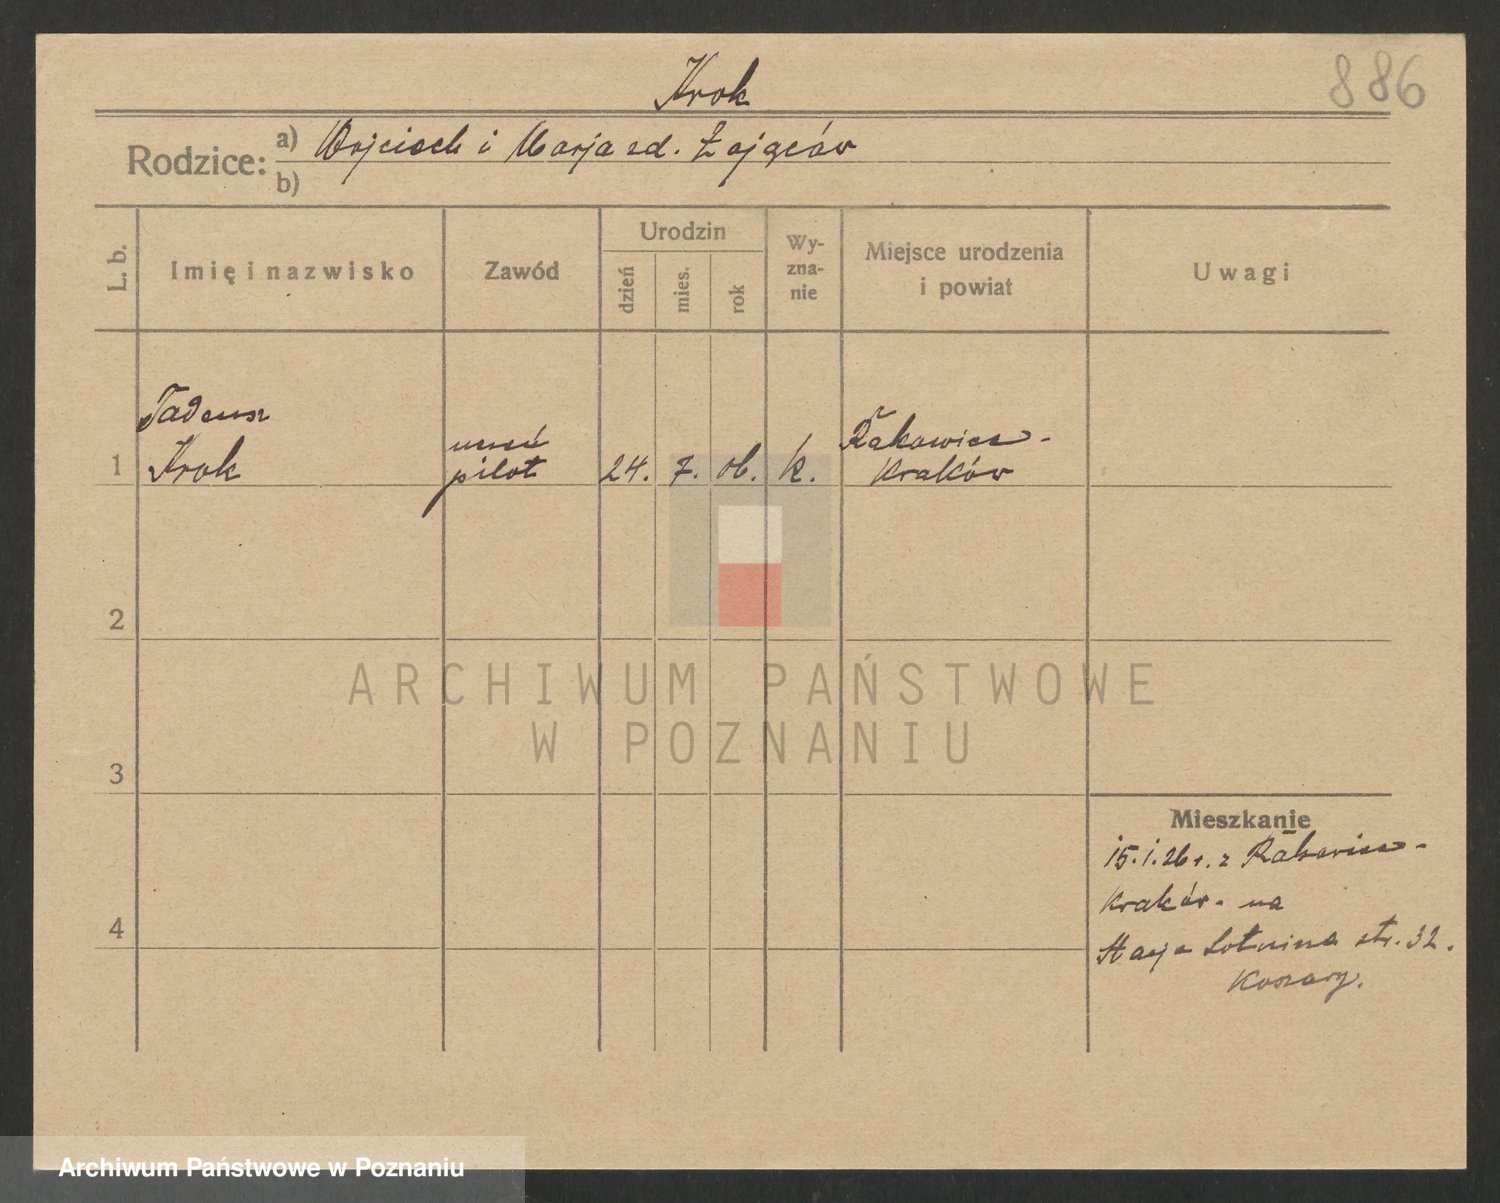 Krok
886
Rodzice: a) Wojciech i Marja zd. Zająców
b)
L. b.
Imię i nazwisko
Zawód
Urodzin
dzień
mies.
rok
Wy-
zna-
nie
Miejsce urodzenia
i powiat
Uwagi
Tadeusz
1 Krok
uczeń
pilot
24. 7. 06. k.
Rakowice -
Kraków
2
3
4
ARCHIWUM PAŃSTWOWE
W POZNANIU
Mieszkanie
15.1.26 r. z Rakowice -
Kraków - na
Stacja Lotnicza str. 32.
Koszary.
Archiwum Państwowe w Poznaniu